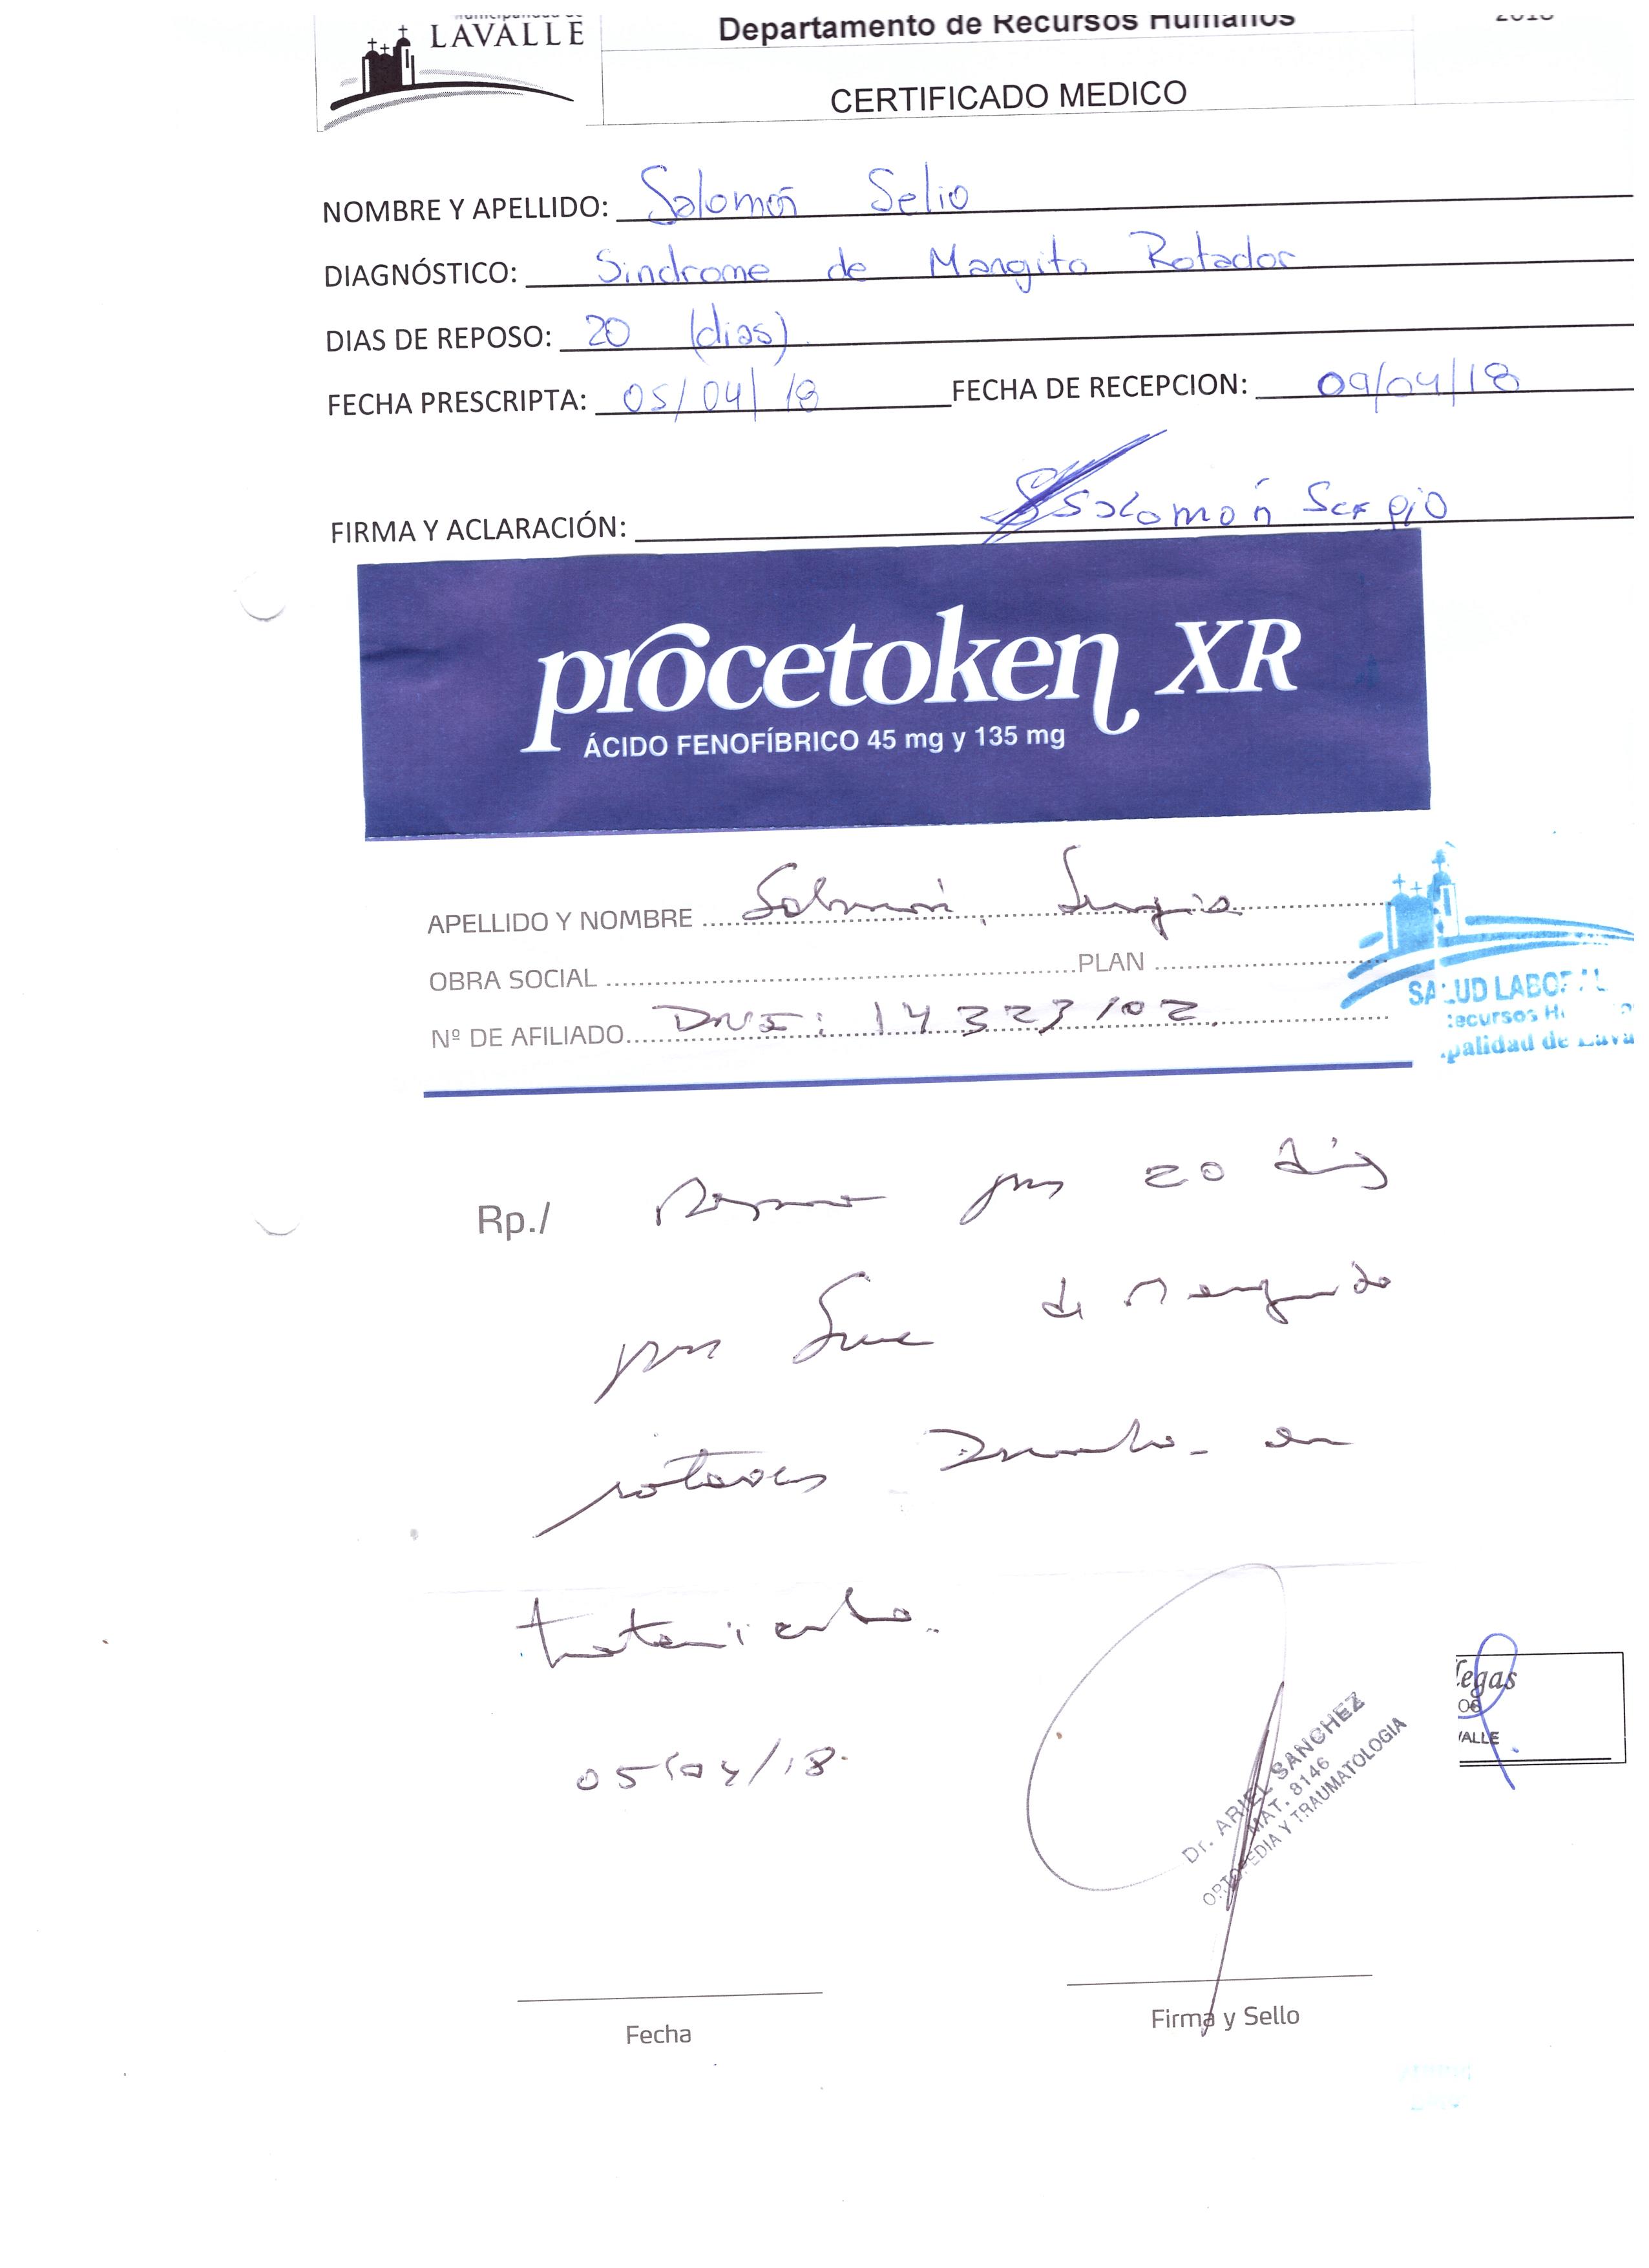 LAVALLE
Departamento de Recursos Humanos
2018
CERTIFICADO MEDICO
NOMBRE Y APELLIDO: Salomón Selio
DIAGNÓSTICO: Sindrome de Mangito Rotador
DIAS DE REPOSO: 20 (dias).
FECHA PRESCRIPTA: 05/04/18 FECHA DE RECEPCION: 09/04/18
FIRMA Y ACLARACIÓN: Salomón Sergio
procetoken XR
ÁCIDO FENOFÍBRICO 45 mg y 135 mg
APELLIDO Y NOMBRE Salomón, Sergio
OBRA SOCIAL PLAN
Nº DE AFILIADO DNI: 14323102.
SALUD LABORAL
Recursos
palidad de Lava
Rp./ Reposo por 20 días
por de Manguito
rotador Derecho - en
tratamiento.
05/04/18.
egas
06
VALLE
Dr. ARIEL SANCHEZ
MAT. 8146
ORTOPEDIA Y TRAUMATOLOGIA
Fecha
Firma y Sello